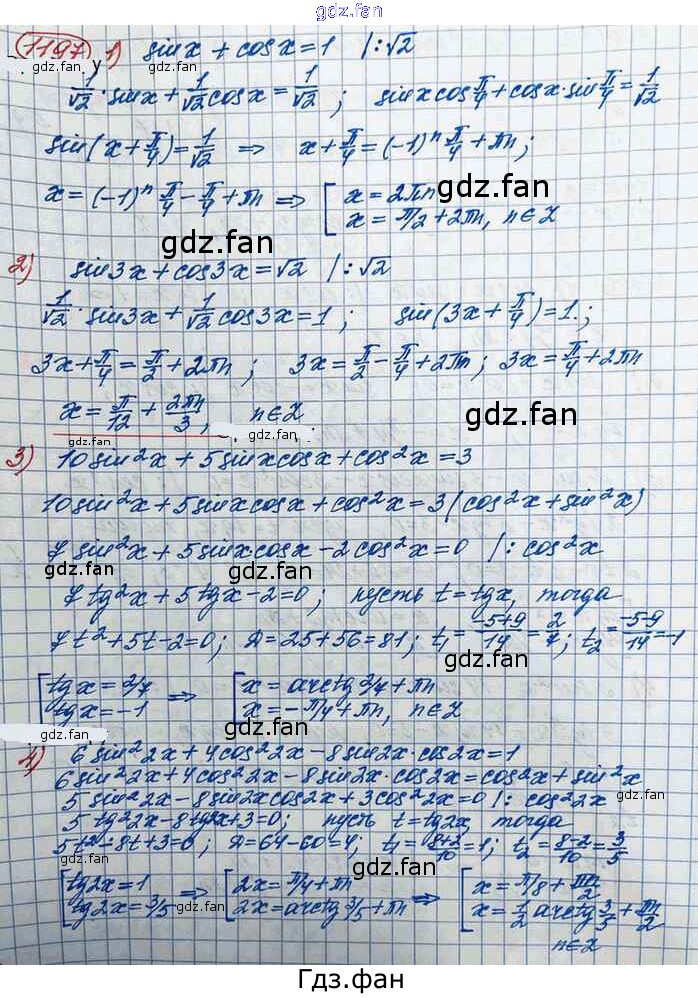 gdz.fan
1197 1) sinx + cosx = 1 /:√2
gdz.fan gdz.fan
1/√2 · sinx + 1/√2 cosx = 1/√2 ; sinx cos π/4 + cosx · sin π/4 = 1/√2
sin(x + π/4) = 1/√2 ⇒ x + π/4 = (-1)ⁿ π/4 + πn;
x = (-1)ⁿ π/4 - π/4 + πn ⇒ [ x = 2πn
x = π/2 + 2πn, n∈Z
gdz.fan
gdz.fan
2) sin3x + cos3x = √2 /:√2
1/√2 · sin3x + 1/√2 cos3x = 1 ; sin(3x + π/4) = 1 ;
3x + π/4 = π/2 + 2πn ; 3x = π/2 - π/4 + 2πn ; 3x = π/4 + 2πn
x = π/12 + 2πn/3 , n∈Z
gdz.fan gdz.fan
3) 10sin²x + 5sinxcosx + cos²x = 3
10sin²x + 5sinxcosx + cos²x = 3(cos²x + sin²x)
7sin²x + 5sinxcosx - 2cos²x = 0 /: cos²x
gdz.fan gdz.fan
7tg²x + 5tgx - 2 = 0 ; пусть t = tgx, тогда
7t² + 5t - 2 = 0 ; Д = 25 + 56 = 81 ; t₁ = -5+9/14 = 2/7 ; t₂ = -5-9/14 = -1
gdz.fan
[ tgx = 2/7 ⇒ [ x = arctg 2/7 + πn
tgx = -1 x = -π/4 + πn, n∈Z
gdz.fan gdz.fan
4) 6sin²2x + 4cos²2x - 8sin2x·cos2x = 1
6sin²2x + 4cos²2x - 8sin2x·cos2x = cos²x + sin²x
5sin²2x - 8sin2xcos2x + 3cos²2x = 0 /: cos²2x
5tg²2x - 8tg2x + 3 = 0 ; пусть t = tg2x, тогда
5t² - 8t + 3 = 0 ; Д = 64 - 60 = 4 ; t₁ = 8+2/10 = 1 ; t₂ = 8-2/10 = 3/5
gdz.fan gdz.fan
[ tg2x = 1 ⇒ [ 2x = π/4 + πn ⇒ [ x = π/8 + πn/2
tg2x = 3/5 2x = arctg 3/5 + πn x = 1/2 arctg 3/5 + πn/2
gdz.fan gdz.fan
n∈Z
Гдз.фан